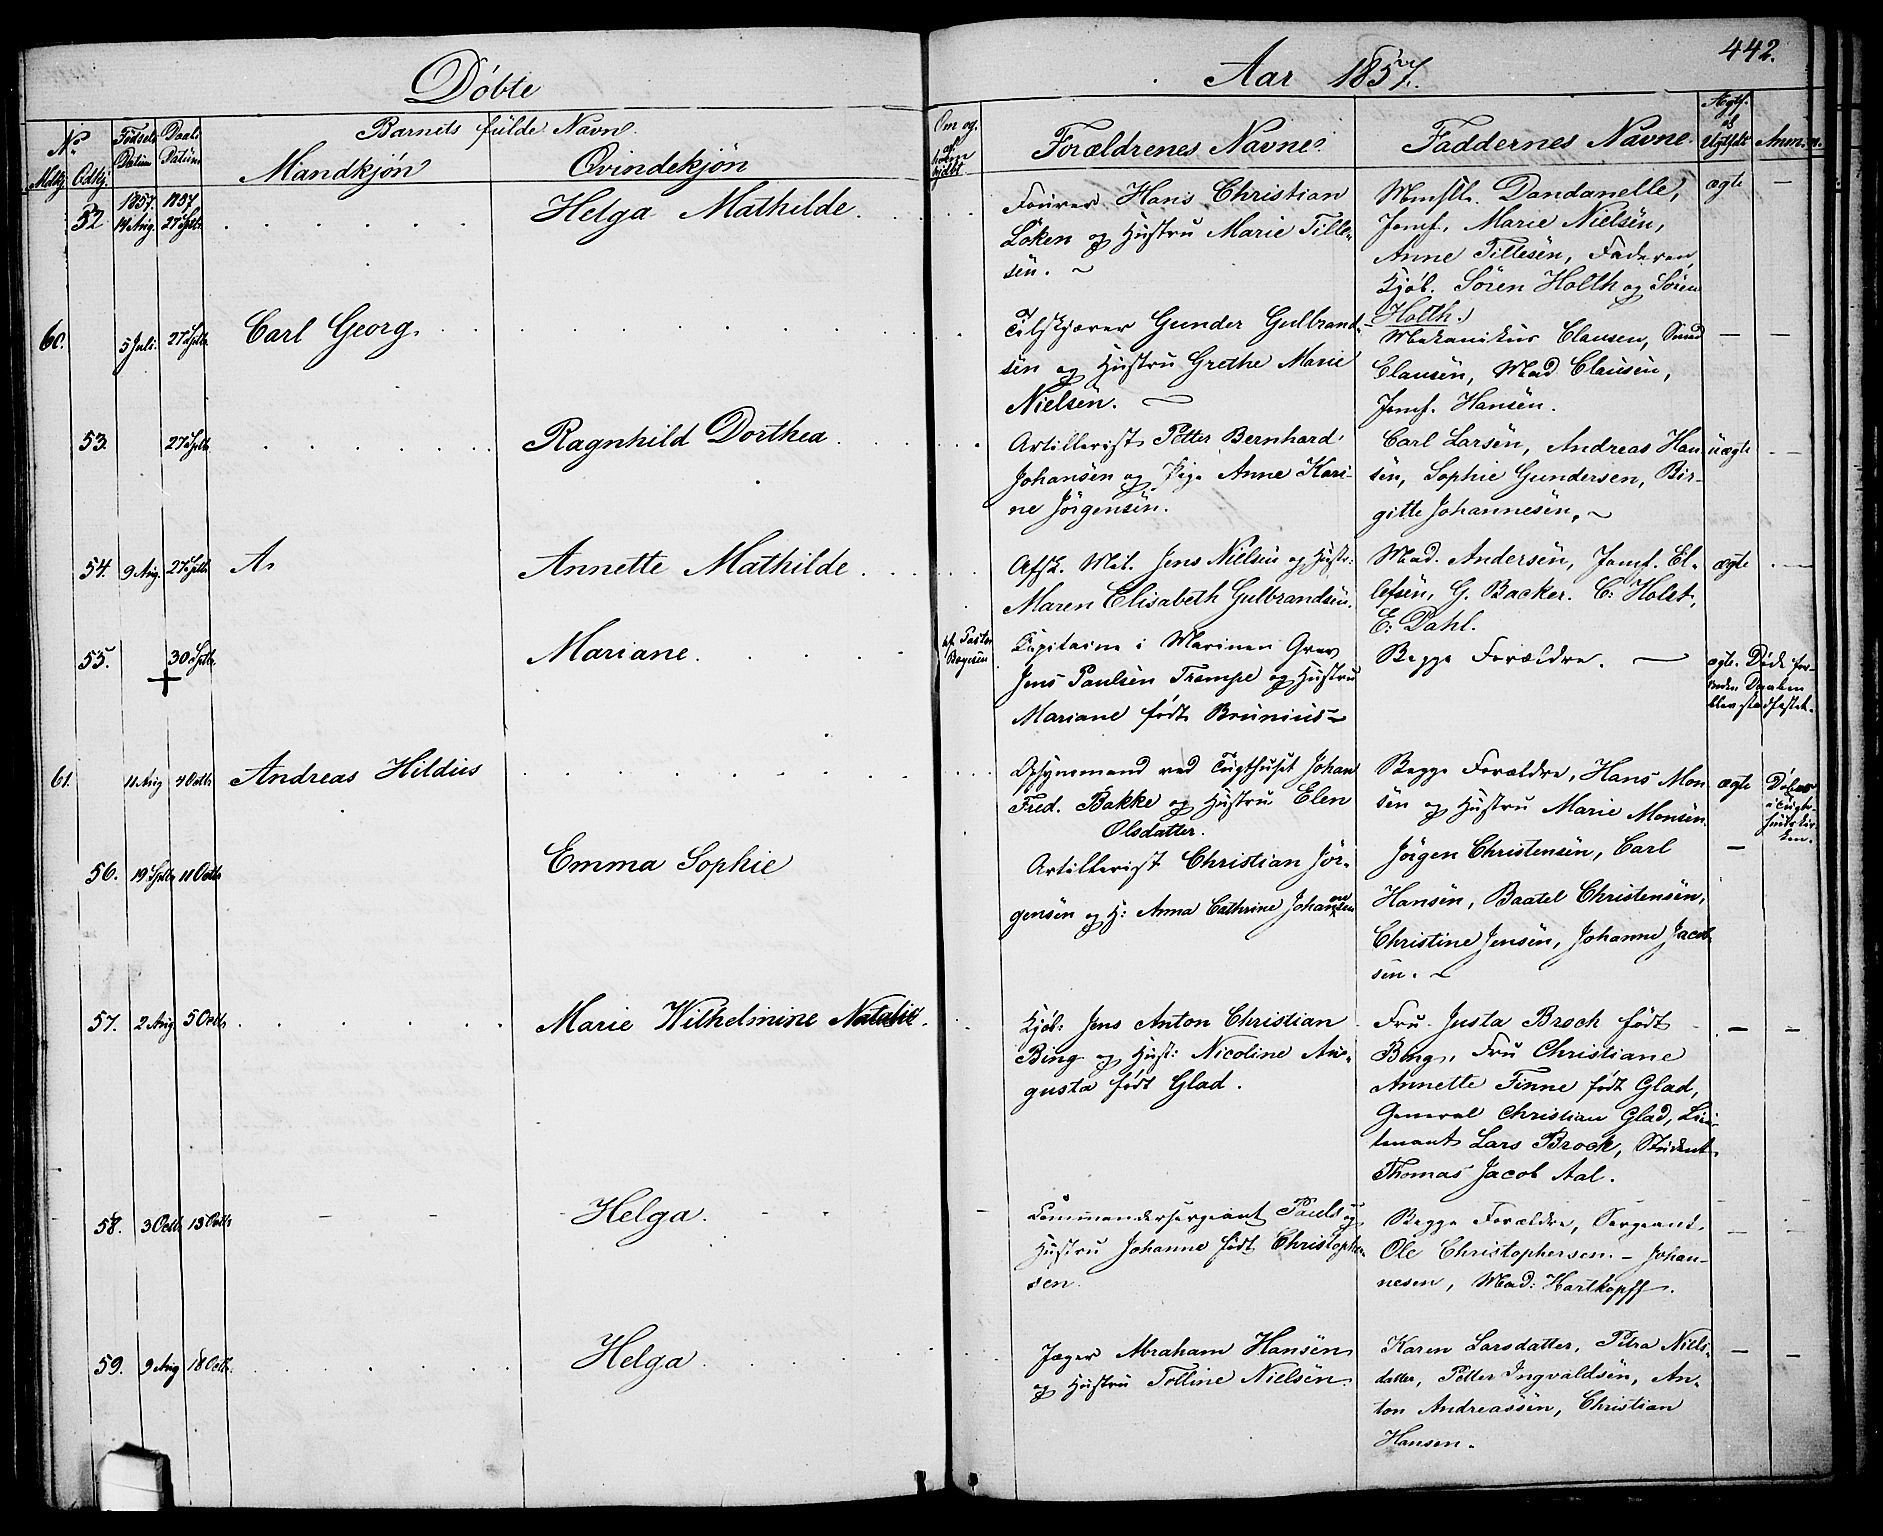 Døbte
Aar 1857.
442.
No
Mdkj. Qdkj.
Fødsels Datum
Daabs Datum
Barnets fulde Navn.
Mandkjøn
Qvindekjøn
Om og af hvem hjdbt.
Forældrenes Navne.
Faddernes Navne.
Ægtf. el. Uægtefødt
Anmm.
1857. 1857.
52 14 Aug. 27 Septb.
Helga Mathilde.
Fourer Hans Christian
Löken og Hustru Marie Tille-
sen.
Dandanelle,
Jomf. Marie Nielsen,
Anne Tillesen, Faderen,
Kjøb. Sören Holth og Sören
Holth.
ægte —
60. 5 Juli. 27 Septb.
Carl Georg.
Gunder Gulbrand-
sen og Hustru Grethe Marie
Nielsen.
Mekanikus Clausen, Smed
Clausen, Mad Clausen,
Jomf. Hansen.
— —
53. 27 Septb.
Ragnhild Dorthea.
Artillerist Petter Bernhard
Johansen og Pige Anne Kari-
ne Jörgensen.
Carl Larsen, Andreas Han-
sen, Sophie Gundersen, Bir-
gitte Johannesen.
uægte —
54. 9 Aug. 27 Septb.
A.
Annette Mathilde.
Afsk. Mil. Jens Nielsen og Hustr:
Maren Elisabeth Gulbrandsen.
Mad. Andersen, Jomf. El-
lefsen, G. Backer. C: Holst,
E: Dahl.
ægte —
55. + 30 Septb.
Mariane.
af Pastor Bøyesen
Capitaine i Marinen Grev
Jens Paulsen Trampe og Hustru
Mariane født Brunius
Begge Forældre.
ægte. Døde for-
inden Daaben
blev stadfestet.
61. 11 Aug 4 Octb.
Andreas Hildus
Opsynsmand ved Tugthuset Johan
Fred. Bakke og Hustru Elen
Olsdatter.
Begge Forældre, Hans Mon-
sen og Hustru Marie Monsen.
ægte
Døbt
i Tugt-
huuskir-
ken.
56. 19 Septb 11 Octb
Emma Sophie
Artillerist Christian Jör-
gensen og H: Anna Cathrine Johannesen
Jörgen Christensen, Carl
Hansen, Baatel Christensen,
Christine Jensen, Johanne Jacob-
sen.
—
57. 2 Aug. 5 Octb
Marie Wilhelmine Natalie.
Kjöb: Jens Anton Christian
Bing og Hust: Nicoline Au-
gusta født Glad.
Fru Justa Brock født
Bing, Fru Christiane
Annette Finne født Glad,
General Christian Glad, Lieu-
tenant Lars Brock, Student
Thomas Jacob Aal.
— —
58. 3 Octb 15 Octb
Helga.
Commandersergeant Pauls og
Hustru Johanne født Christopher-
sen.
Begge Forældre, Sergeant
Ole Christophersen. – Johan-
nesen, Mad: Hartkopff.
— —
59. 9 Aug 18 Octb.
Helga.
Jæger Abraham Hansen
og Hustru Tolline Nielsen.
Karen Larsdatter, Petra Niels-
datter, Petter Ingvaldsen, An-
ton Andreassen, Christian
Hansen.
— —